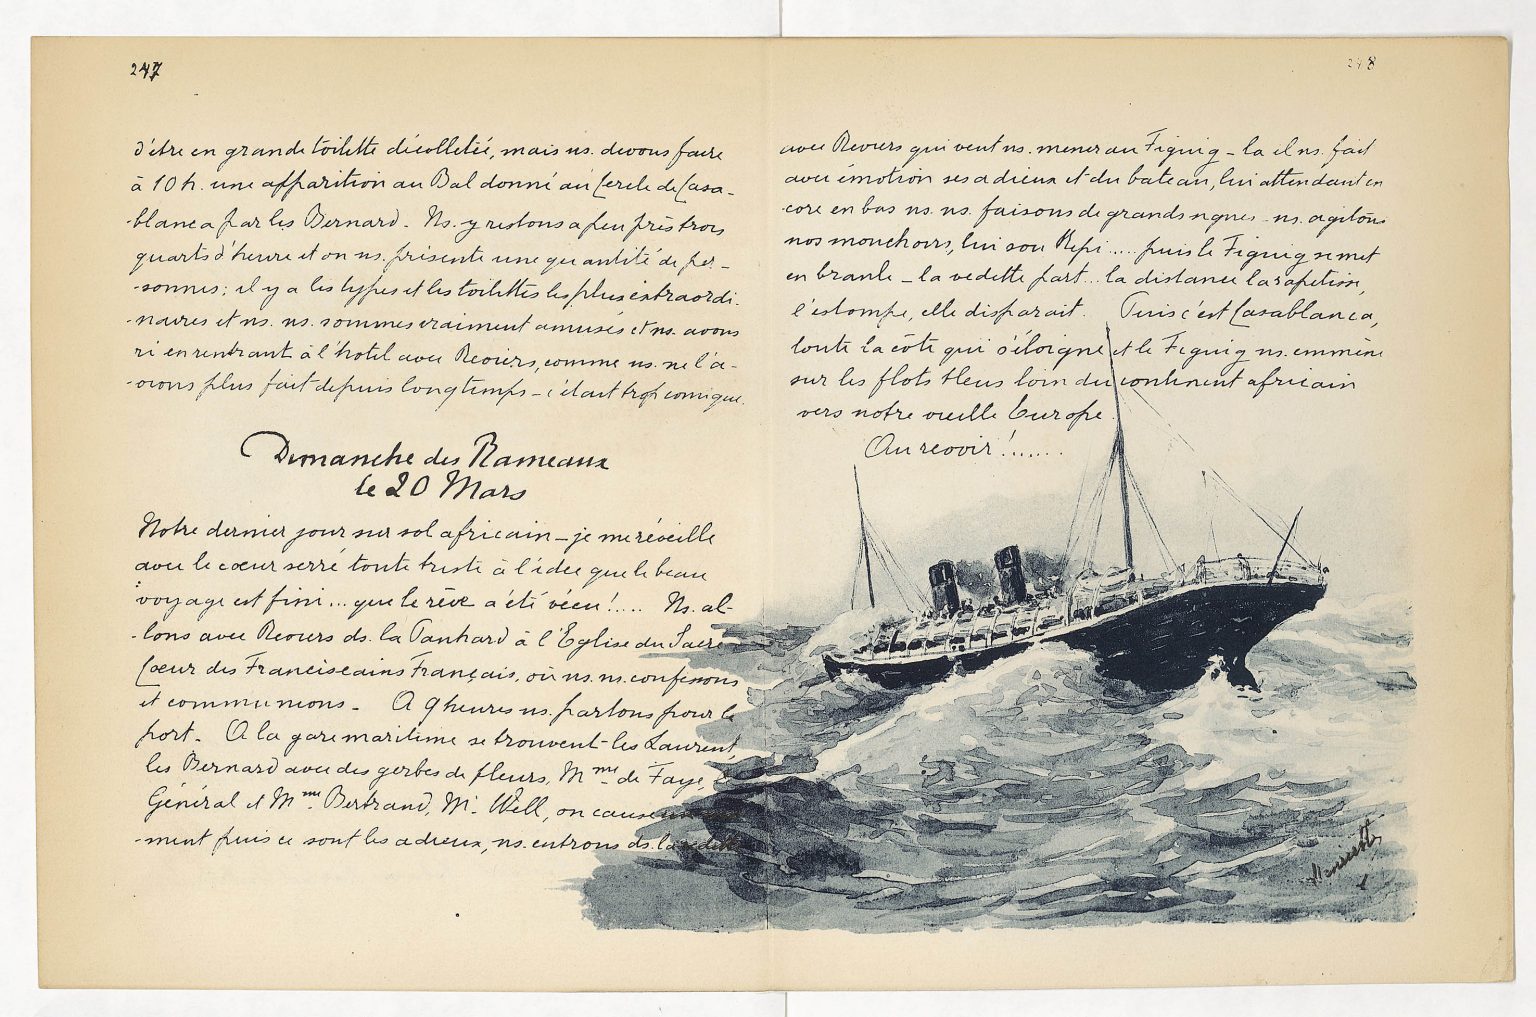 247
d'être en grande toilette décolletée, mais ns. devons faire
à 10 h. une apparition au Bal donné au Cercle de Casa-
-blanca par les Bernard. Ns. y restons a peu près trois
quarts d'heure et on ns. présente une quantité de per-
-sonnes: il y a les types et les toilettes les plus extraordi.
-naires et ns. ns. sommes vraiment amusés et ns. avons
ri en rentrant à l'hotel avec Reviers, comme ns. ne l'a-
-vions plus fait depuis longtemps - c'était trop comique.
Dimanche des Rameaux
le 20 Mars
Notre dernier jour sur sol africain - je me réveille
avec le cœur serré toute triste à l'idée que le beau
voyage est fini... que le rêve a été vécu!.... Ns. al-
-lons avec Reviers ds. la Panhard à l'Eglise du Sacré
Cœur des Franciscains Français, où ns. ns. confessons
et communions - A 9 heures ns. partons pour le
port. A la gare maritime se trouvent les Laurent,
les Bernard avec des gerbes de fleurs, Mme de Faye, le
Général et Mme Bertrand, Mr Well, on cause
-ment puis ce sont les adieux, ns. entrons ds. la vedette
248
avec Reviers qui veut ns. mener au Figuig - la il ns. fait
avec émotion ses adieux et du bateau, lui attendant en
-core en bas ns. ns. faisons de grands signes - ns. agitons
nos mouchoirs, lui son Kepi..... puis le Figuig se met
en branle - la vedette part... la distance la rapetisse,
l'estompe, elle disparait. Puis c'est Casablanca,
toute la côte qui s'éloigne et le Figuig ns. emmène
sur les flots bleus loin du continent africain
vers notre vieille Europe.
Au revoir!......